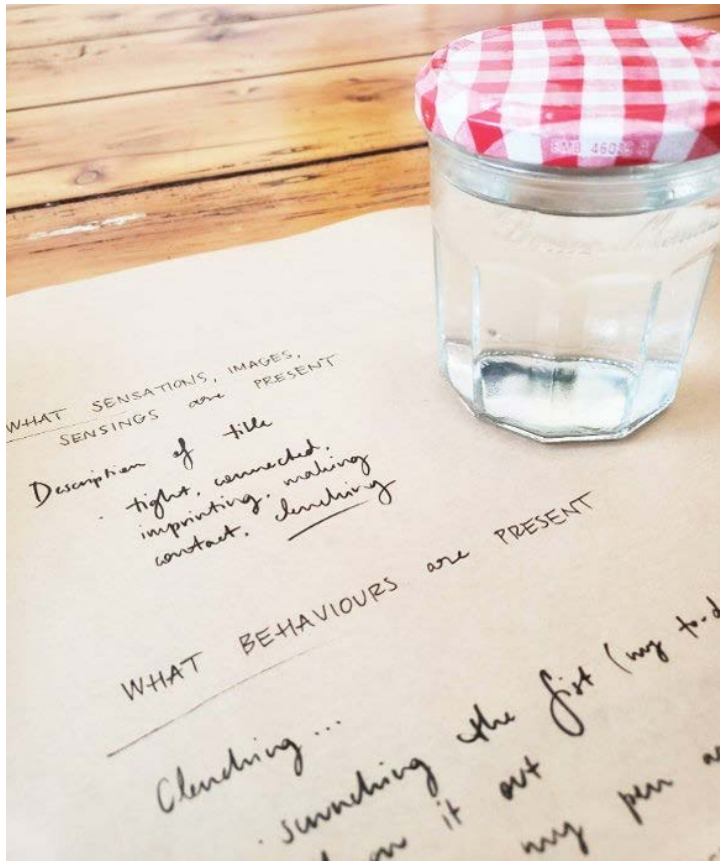 EMB 460
Bonne Maman
WHAT SENSATIONS, IMAGES,
SENSINGS are PRESENT
Description of title
· tight, connected,
imprinting, making
contact, clenching
WHAT BEHAVIOURS are PRESENT
Clenching...
· scrunching the fist (my to-d
it out
my pen